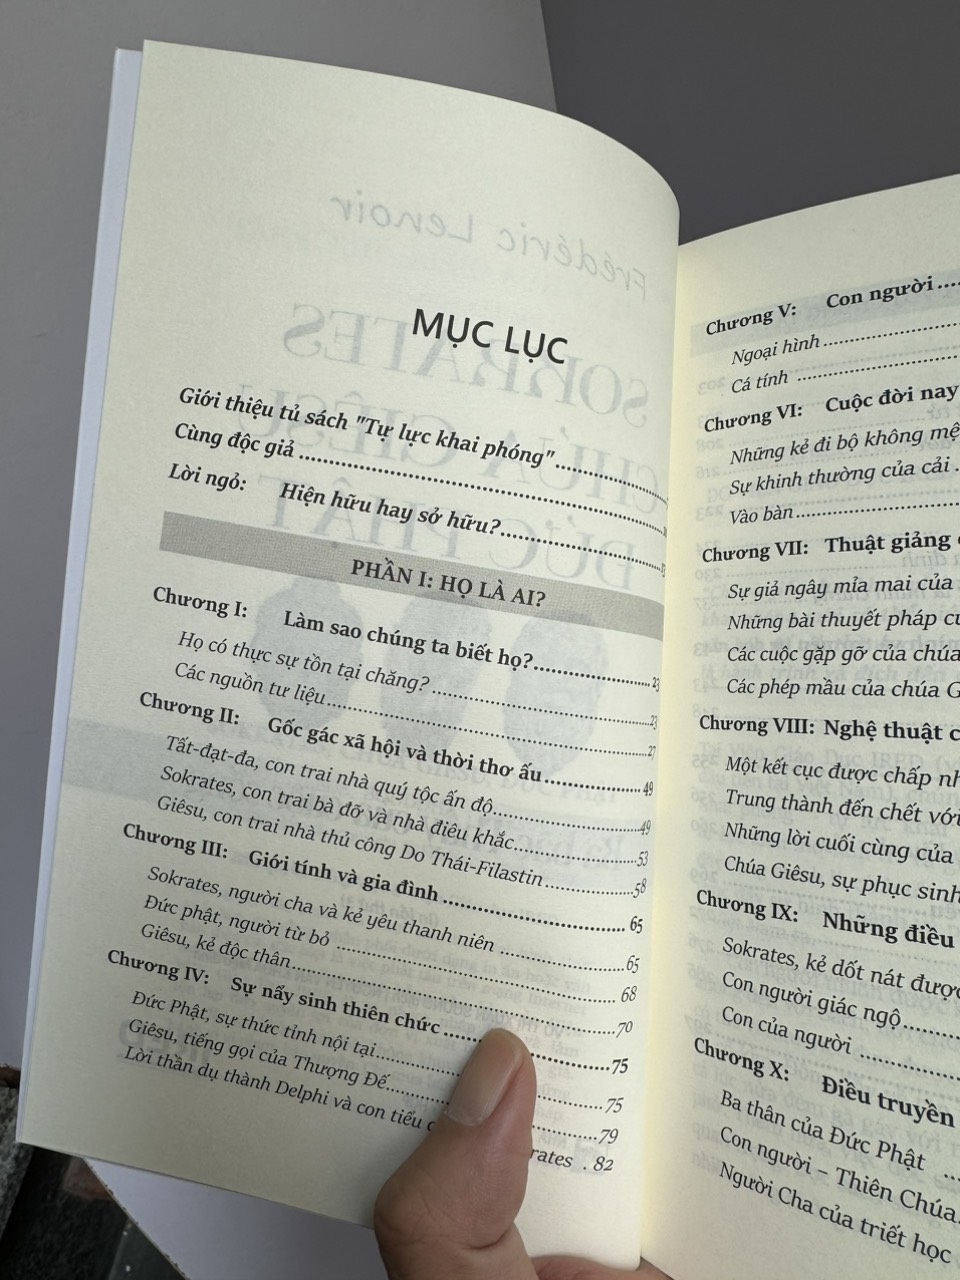 MỤC LỤC
Giới thiệu tủ sách "Tự lực khai phóng"
Cùng độc giả
Lời ngỏ: Hiện hữu hay sở hữu?
PHẦN I: HỌ LÀ AI?
Chương I: Làm sao chúng ta biết họ? 23
Họ có thực sự tồn tại chăng? 23
Các nguồn tư liệu 27
Chương II: Gốc gác xã hội và thời thơ ấu 49
Tất-đạt-đa, con trai nhà quý tộc ấn độ 49
Sokrates, con trai bà đỡ và nhà điêu khắc 53
Giêsu, con trai nhà thủ công Do Thái-Filastin 58
Chương III: Giới tính và gia đình 65
Sokrates, người cha và kẻ yêu thanh niên 65
Đức phật, người từ bỏ 68
Giêsu, kẻ độc thân 70
Chương IV: Sự nẩy sinh thiên chức 75
Đức Phật, sự thức tỉnh nội tại 75
Giêsu, tiếng gọi của Thượng Đế 79
Lời thần dụ thành Delphi và con tiểu 82
Chương V: Con người
Ngoại hình
Cá tính
Chương VI: Cuộc đời nay
Những kẻ đi bộ không
Sự khinh thường của cải
Vào bàn
Chương VII: Thuật giảng
Sự giả ngây mỉa mai của
Những bài thuyết pháp
Các cuộc gặp gỡ của chúa
Các phép mầu của chúa
Chương VIII: Nghệ thuật
Một kết cục được chấp
Trung thành đến chết với
Những lời cuối cùng của
Chúa Giêsu, sự phục sinh
Chương IX: Những điều
Sokrates, kẻ dốt nát được
Con người giác ngộ
Con của người
Chương X: Điều truyền
Ba thân của Đức Phật
Con người – Thiên Chúa
Người Cha của triết học